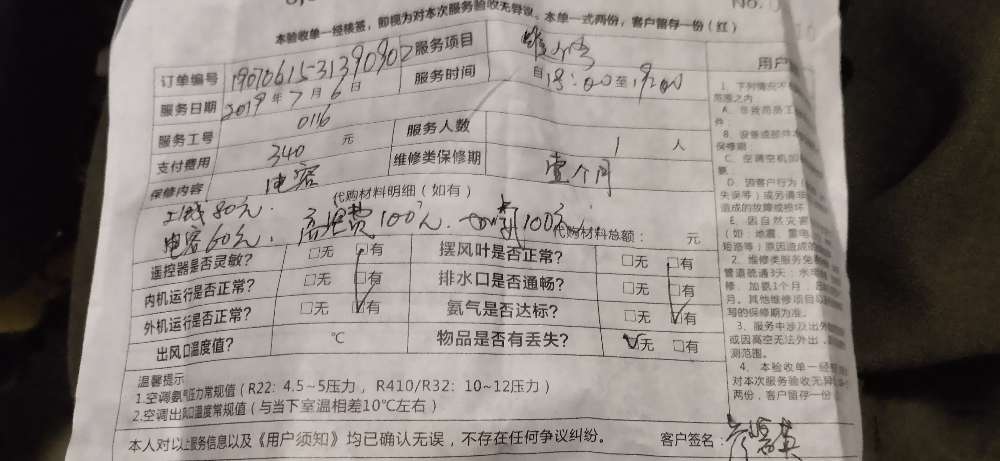 No.0
本验收单一经核签，即视为对本次服务验收无异议。本单一式两份，客户留存一份（红）
订单编号 1907061531390902 服务项目
服务日期 2019年7月6日 服务时间 自18:00至19:00
服务工号 0116 服务人数 1 人
支付费用 340 元 维修类保修期 壹个月
保修内容 电容
代购材料明细（如有）
上线80元.
电容60元. 高空费100元. 加氟100元. 代购材料总额： 元
遥控器是否灵敏？ □无 □有 摆风叶是否正常？ □无 □有
内机运行是否正常？ □无 □有 排水口是否通畅？ □无 □有
外机运行是否正常？ □无 □有 氨气是否达标？ □无 □有
出风口温度值？ ℃ 物品是否有丢失？ □无 □有
温馨提示
1.空调氨气压力常规值（R22: 4.5~5压力， R410/R32: 10~12压力）
2.空调出风口温度常规值（与当下室温相差10℃左右）
本人对以上服务信息以及《用户须知》均已确认无误，不存在任何争议纠纷。 客户签名：
用户
1、下列情况不
范围之内
A、非我司员工
件；
B、设备或部件本
保修期
C、空调空机加
D、因客户行为（
失误等）或另请非
造成的故障或损坏
E、因自然灾害
（如：地震、雷电
短路等）原因造成的
2、维修类服务免费
管道疏通3天；水
修、加氨1个月，
月。其他维修项目以
写的保修期为准。
3、服务中涉及出外
或因高空无法外出，
测范围。
4、本验收单一经
对本次服务验收无异
两份，客户留存一份